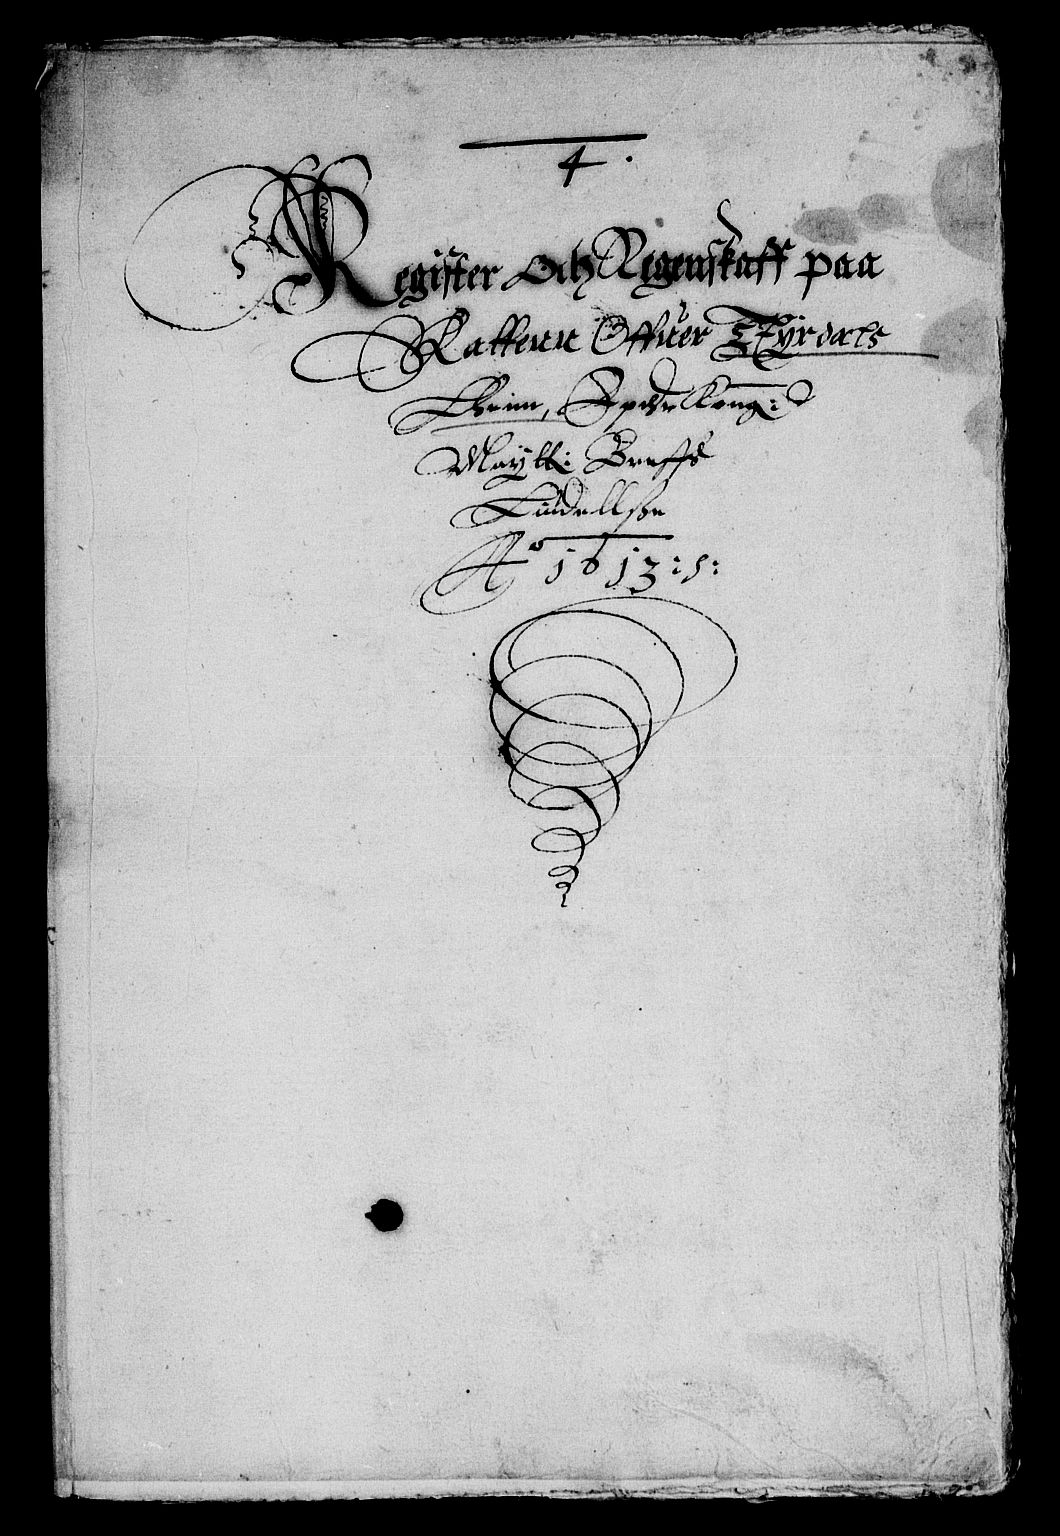 4.
Register Och Regenskaff paa
Skattenn Offuer Styrdals
Lheen, Epther Kong:
Maytt: Breffs
Liudellße
Ao 1613: